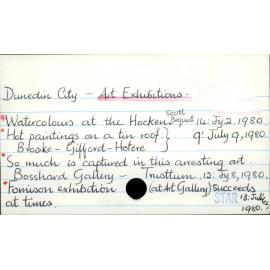 Dunedin City - Art Exhibitions -
Watercolours at the Hocken Scott Bequest 14: Jy 2. 1980
Hot paintings on a tin roof } 9: July 9, 1980
Brooke - Gifford - Hotere
So much is captured in this arresting art.
Bosshard Gallery - Trusttum. 12: Jy 8, 1980
Fomison exhibition (at Art Gallery) succeeds
at times. STAR 13: July 1980.